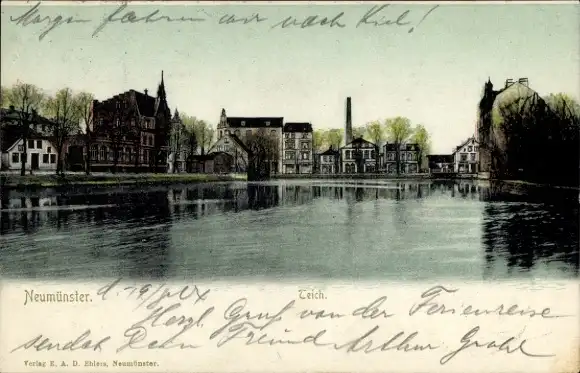 Morgen fahren wir nach Kiel!
Neumünster. d. 19/7 04 Teich.
Herzl. Gruß von der Ferienreise
sendet Dein Freund Arthur Grahl
Verlag E. A. D. Ehlers, Neumünster.